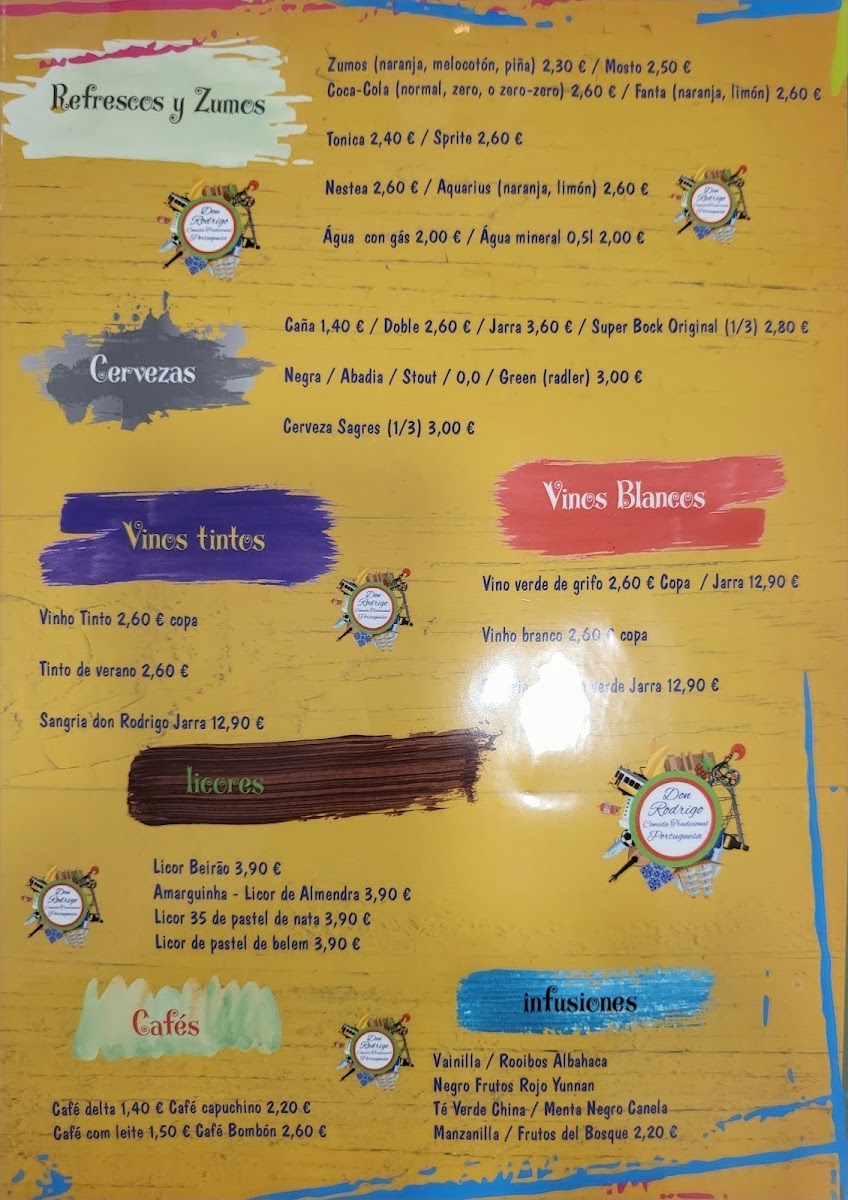 Refrescos y Zumos
Zumos (naranja, melocotón, piña) 2,30 € / Mosto 2,50 €
Coca-Cola (normal, zero, o zero-zero) 2,60 € / Fanta (naranja, limón) 2,60 €
Tonica 2,40 € / Sprite 2,60 €
Nestea 2,60 € / Aquarius (naranja, limón) 2,60 €
Água con gás 2,00 € / Água mineral 0,5l 2,00 €
Don
Rodrigo
Comida Tradicional
Portuguesa
Don
Rodrigo
Comida Tradicional
Portuguesa
Cervezas
Caña 1,40 € / Doble 2,60 € / Jarra 3,60 € / Super Bock Original (1/3) 2,80 €
Negra / Abadia / Stout / 0,0 / Green (radler) 3,00 €
Cerveza Sagres (1/3) 3,00 €
Vinos tintos
Vinho Tinto 2,60 € copa
Tinto de verano 2,60 €
Sangria don Rodrigo Jarra 12,90 €
Don
Rodrigo
Comida Tradicional
Portuguesa
Vinos Blancos
Vino verde de grifo 2,60 € Copa / Jarra 12,90 €
Vinho branco 2,60 € copa
verde Jarra 12,90 €
licores
Licor Beirão 3,90 €
Amarguinha - Licor de Almendra 3,90 €
Licor 35 de pastel de nata 3,90 €
Licor de pastel de belem 3,90 €
Don
Rodrigo
Comida Tradicional
Portuguesa
Don
Rodrigo
Comida Tradicional
Portuguesa
Cafés
Café delta 1,40 € Café capuchino 2,20 €
Café com leite 1,50 € Café Bombón 2,60 €
Don
Rodrigo
Comida Tradicional
Portuguesa
infusiones
Vainilla / Rooibos Albahaca
Negro Frutos Rojo Yunnan
Té Verde China / Menta Negro Canela
Manzanilla / Frutos del Bosque 2,20 €